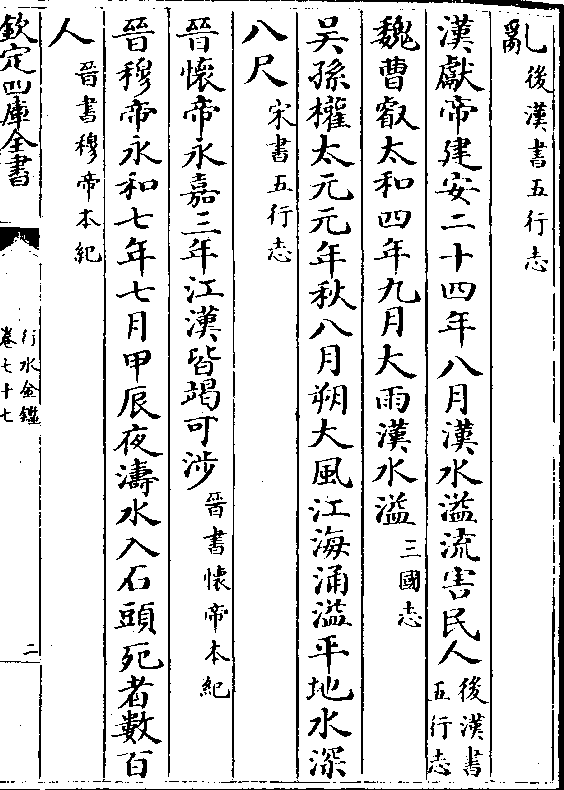 亂後漢書五行志
漢獻帝建安二十四年八月漢水溢流害民人後漢書五行志
魏曹叡太和四年九月大雨漢水溢三國志
吳孫權太元元年秋八月朔大風江海涌溢平地水深
八尺宋書五行志
晉懷帝永嘉三年江漢皆竭可涉晉書懷帝本紀
晉穆帝永和七年七月甲辰夜濤水入石頭死者數百
人晉書穆帝本紀
欽定四庫全書
行水金鑑
卷七十七
二